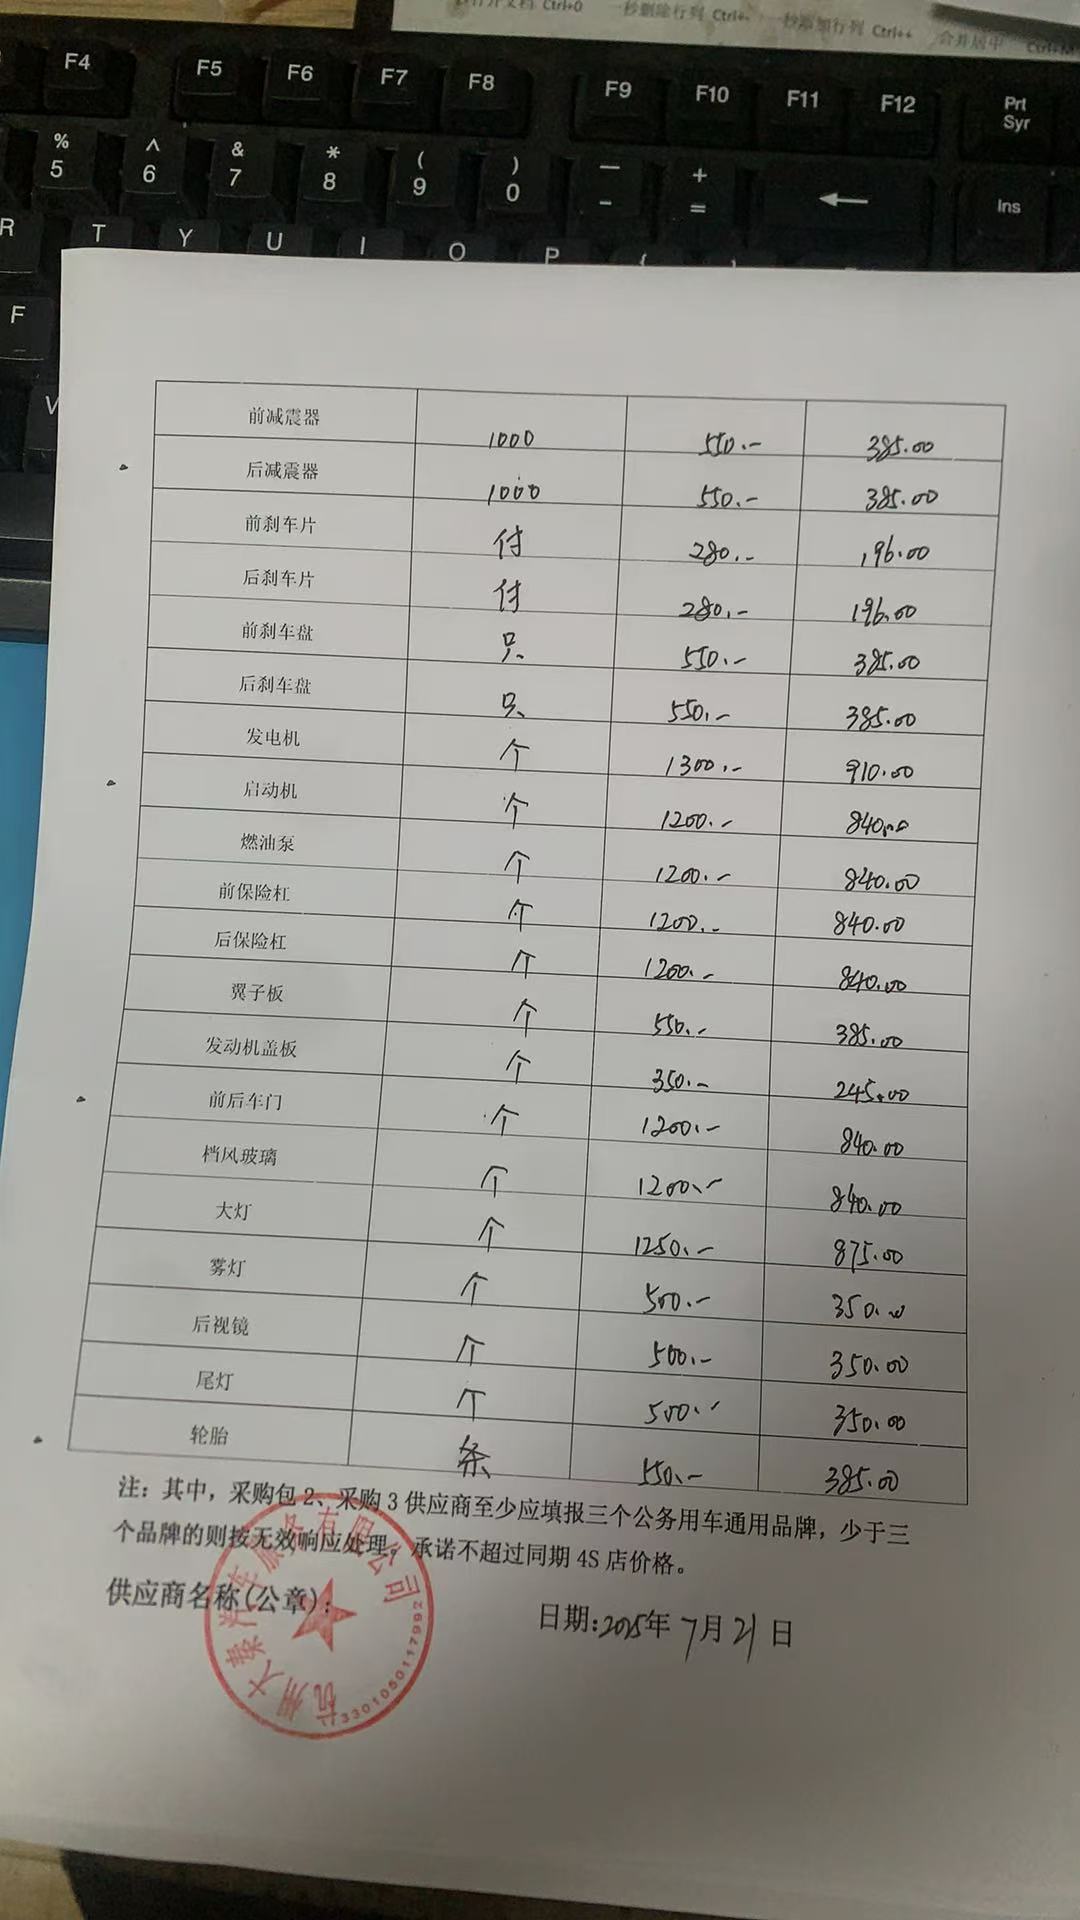 秒删除行列 Ctrl+-
秒添加行列 Ctrl++
合并居中
F4 F5 F6 F7 F8 F9 F10 F11 F12 Prt
Syr
% ^ & * ( ) — +
5 6 7 8 9 0 - = ← Ins
R T Y U I O P {
F
V
前减震器 1000 550.- 385.00
后减震器 1000 550.- 385.00
前刹车片 付 280.- 196.00
后刹车片 付 280.- 196.00
前刹车盘 只 550.- 385.00
后刹车盘 只 550.- 385.00
发电机 个 1300.- 910.00
启动机 个 1200.- 840.00
燃油泵 个 1200.- 840.00
前保险杠 个 1200.- 840.00
后保险杠 个 1200.- 840.00
翼子板 个 550.- 385.00
发动机盖板 个 350.- 245.00
前后车门 个 1200.- 840.00
档风玻璃 个 1200.- 840.00
大灯 个 1250.- 875.00
雾灯 个 500.- 350.00
后视镜 个 500.- 350.00
尾灯 个 500.- 350.00
轮胎 条 550.- 385.00
注：其中，采购包2、采购3供应商至少应填报三个公务用车通用品牌，少于三
个品牌的则按无效响应处理。承诺不超过同期4S店价格。
供应商名称(公章)：
日期:2025年7月21日
杭州大秦汽车服务有限公司
3301050117992